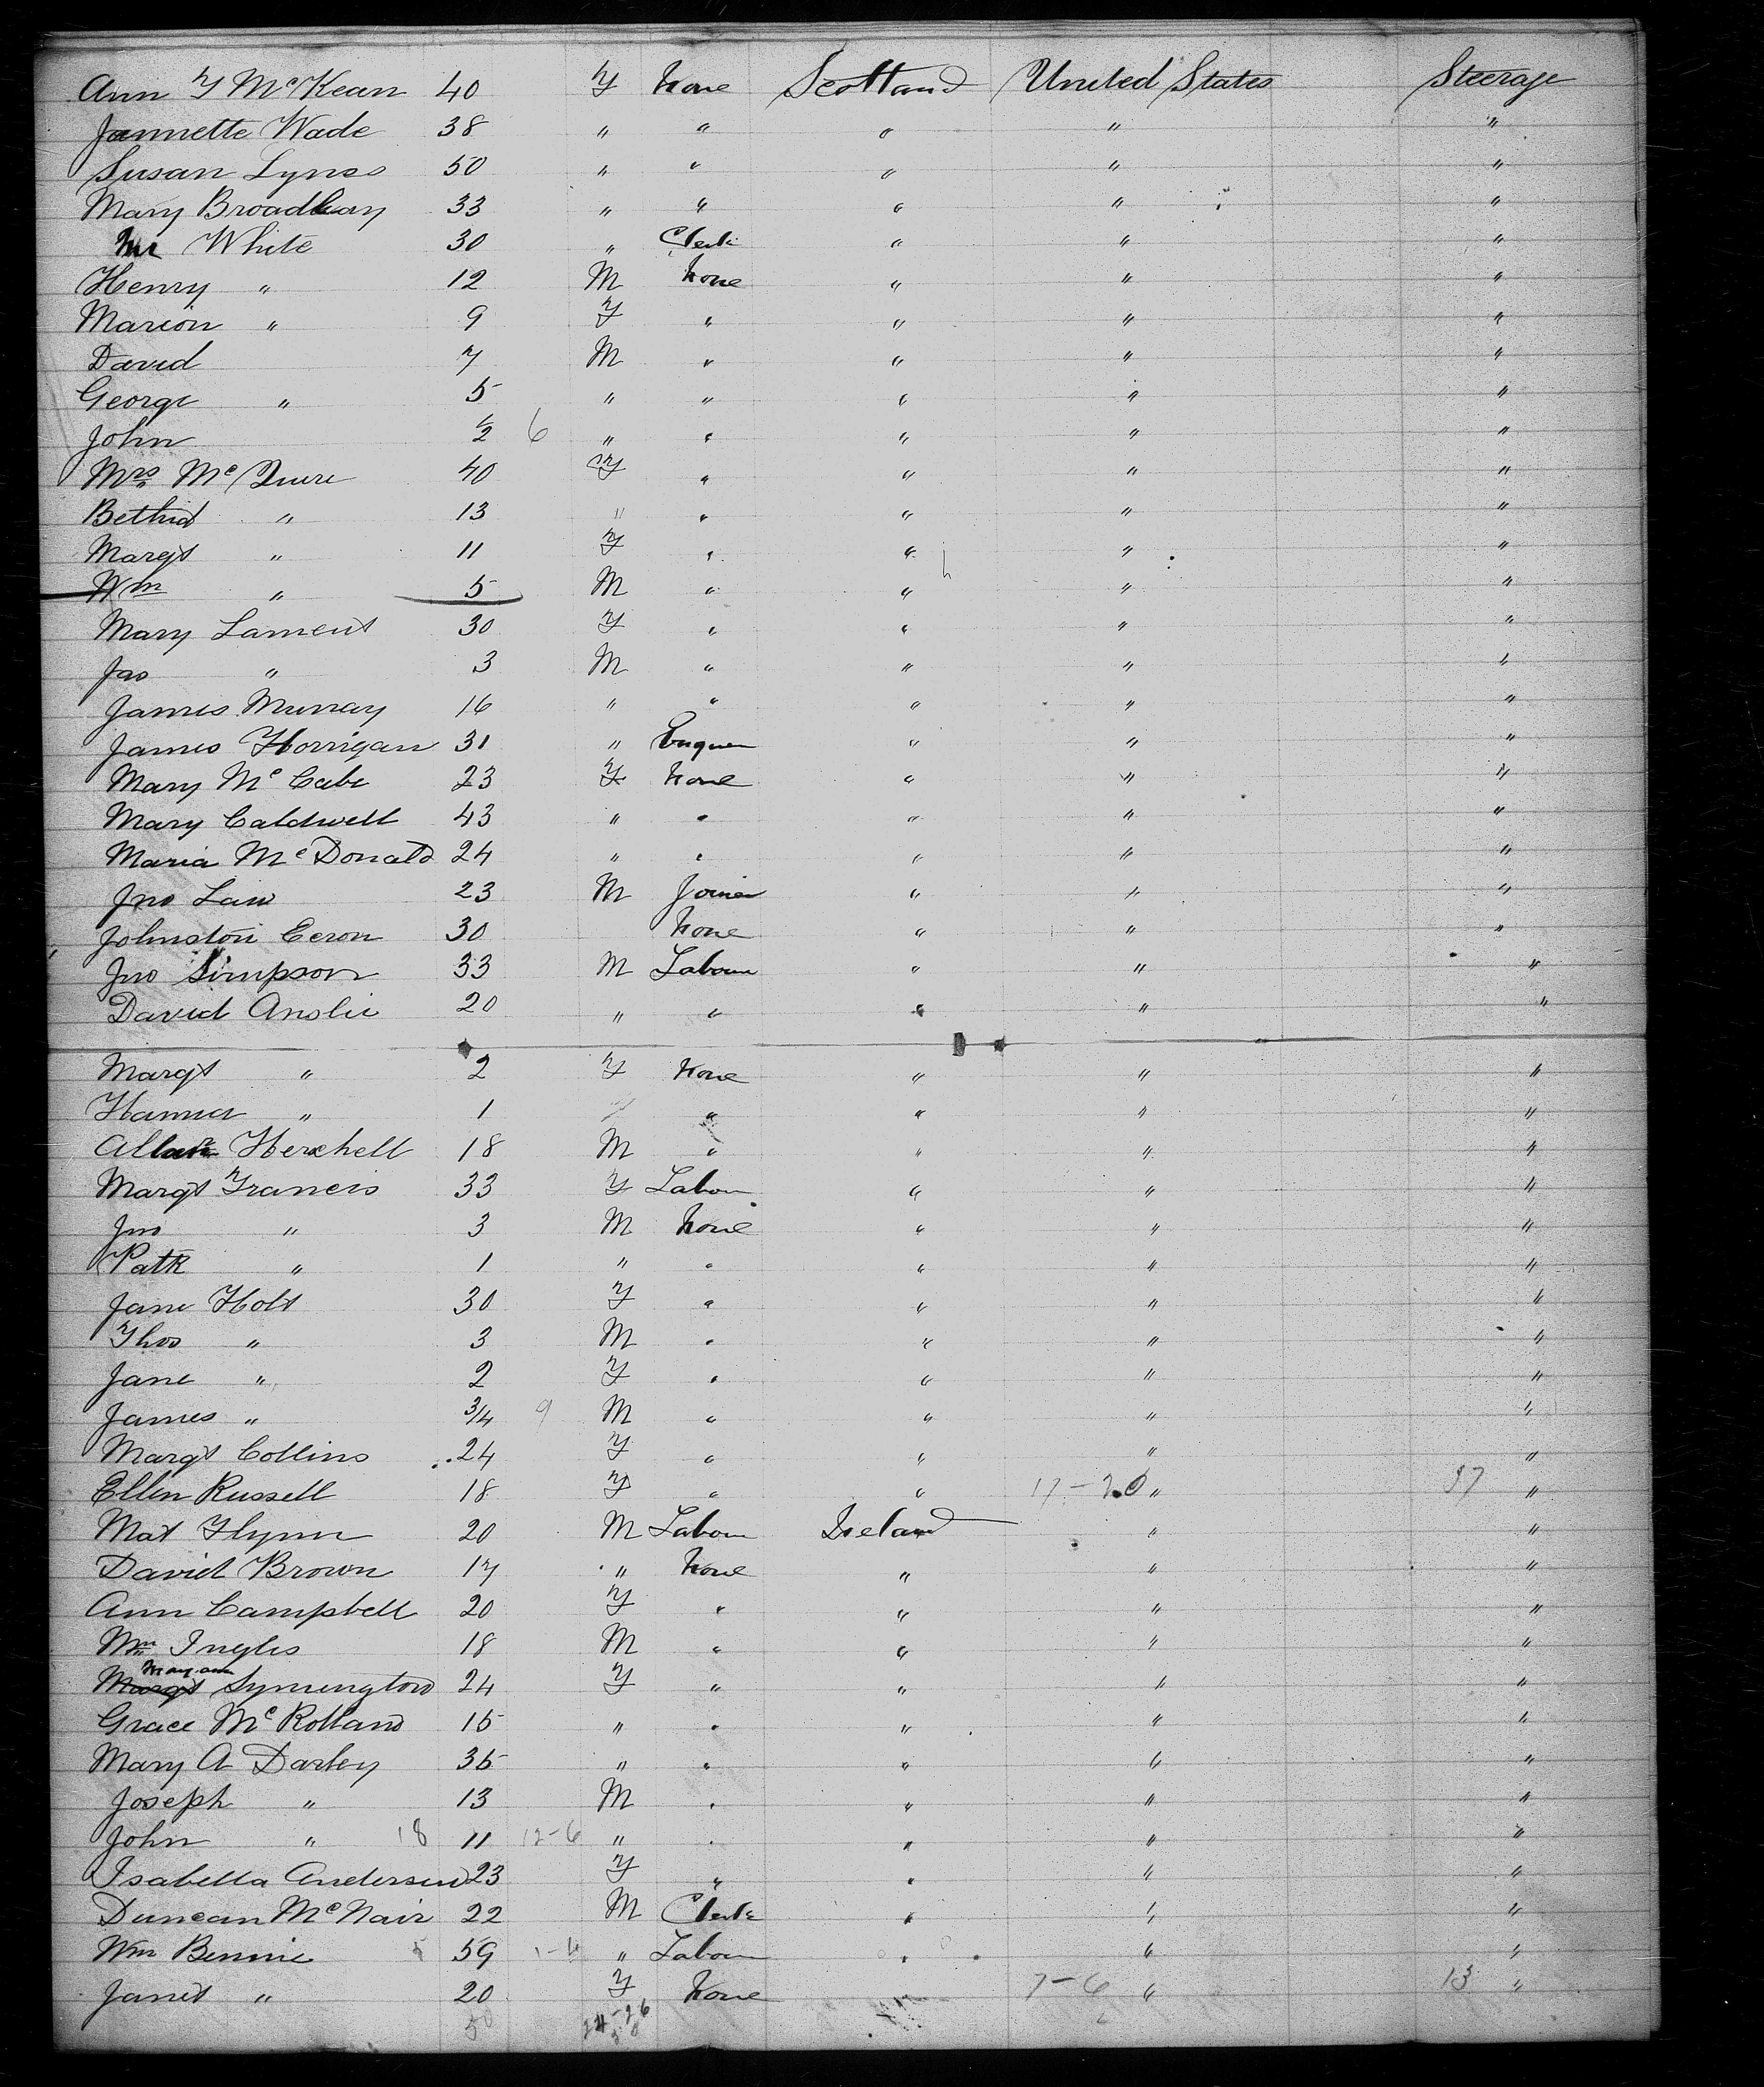 Ann F McKean 40 F None Scotland United States Steerage
Jannette Wade 38 " " " " "
Susan Lynas 50 " " " " "
Mary Broadbay 33 " " " " "
Mr White 30 " Clerk " " "
Henry " 12 M None " " "
Marion " 9 F " " " "
David 7 M " " " "
George " 5 " " " " "
John 1/2 6 " " " " "
Mrs Mc 40 F " " " "
Bethia " 13 " " " " "
Margt " 11 F " " " "
Wm " 5 M " " " "
Mary Lament 30 F " " " "
Jas " 3 M " " " "
James Murray 16 " " " " "
James Horrigan 31 " " " "
Mary McCabe 23 F None " " "
Mary Caldwell 43 " " " " "
Maria McDonald 24 " " " " "
Jno Law 23 M Joiner " " "
Johnston Ceron 30 None " " "
Jno Simpson 33 M Labour " " "
David Anslie 20 " " " " "
Margt " 2 F None " " "
Hanna " 1 " " " "
Allan Herchell 18 M " " " "
Margt Francis 33 F Labour " " "
Jno " 3 M None " " "
Patk " 1 " " " " "
Jane Holt 30 F " " " "
Thos " 3 M " " " "
Jane " 2 F " " " "
James " 3/4 9 M " " " "
Margt Collins 24 F " " " "
Ellen Russell 18 F " " 17-20 " 37 "
Mat Flynn 20 M Labour Ireland " "
David Brown 17 " None " " "
Ann Campbell 20 F " " " "
Wm Inglis 18 M " " " "
Mary ann
Margt Symington 24 F " " " "
Grace McRolland 15 " " " " "
Mary A Darley 35 " " " " "
Joseph " 13 M " " " "
John " 18 11 12-6 " " " " "
Isabella Anderson 23 F " " " "
Duncan McNair 22 M Clerk " " "
Wm Bennie 5 59 1-4 " Labour " " "
Janet " 20 F None 7-6 " 13 "
50 24-26